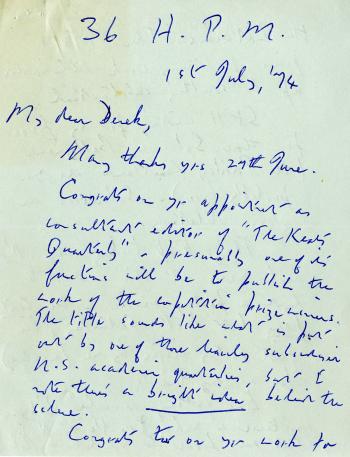 36 H. P. M.
1st July, '74
My dear Derek,
Many thanks yrs 29th June.
Congrats on yr appointment as
consultant editor of "The Keats
Quarterly" - presumably one of its
functions will be to publish the
work of the competition prizewinners.
The title sounds like what is put
out by one of those heavily subsidised
U.S. academic quarterlies, but I
note there's a bright idea behind the
scheme.
Congrats too on yr work for